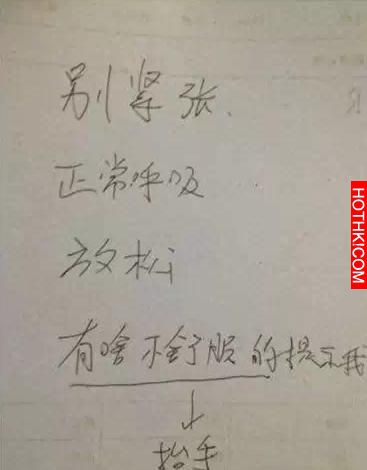 别紧张.
正常呼吸
放松
有啥不舒服的提示我
↓
抬手
HOTHK!COM